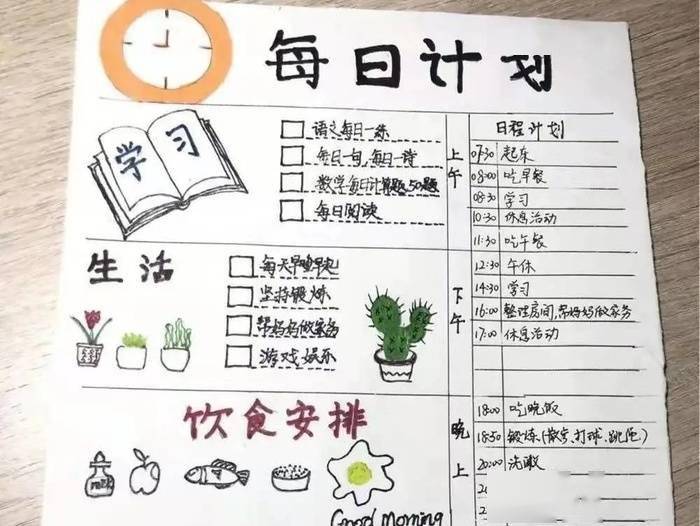 每日计划
学习
语文每日一练
每日一句,每日一诗
数学每日计算题,50题
每日阅读
生活
每天早睡早起
坚持锻炼
帮妈妈做家务
游戏娱乐
饮食安排
milk
Good morning
日程计划
上午
07:30 起床
08:00 吃早餐
08:30 学习
10:30 休息活动
11:30 吃午餐
下午
12:30 午休
14:30 学习
16:00 整理房间,帮妈妈做家务
17:00 休息活动
晚上
18:00 吃晚饭
18:50 锻炼(散步.打球.跳绳.)
20:00 洗漱